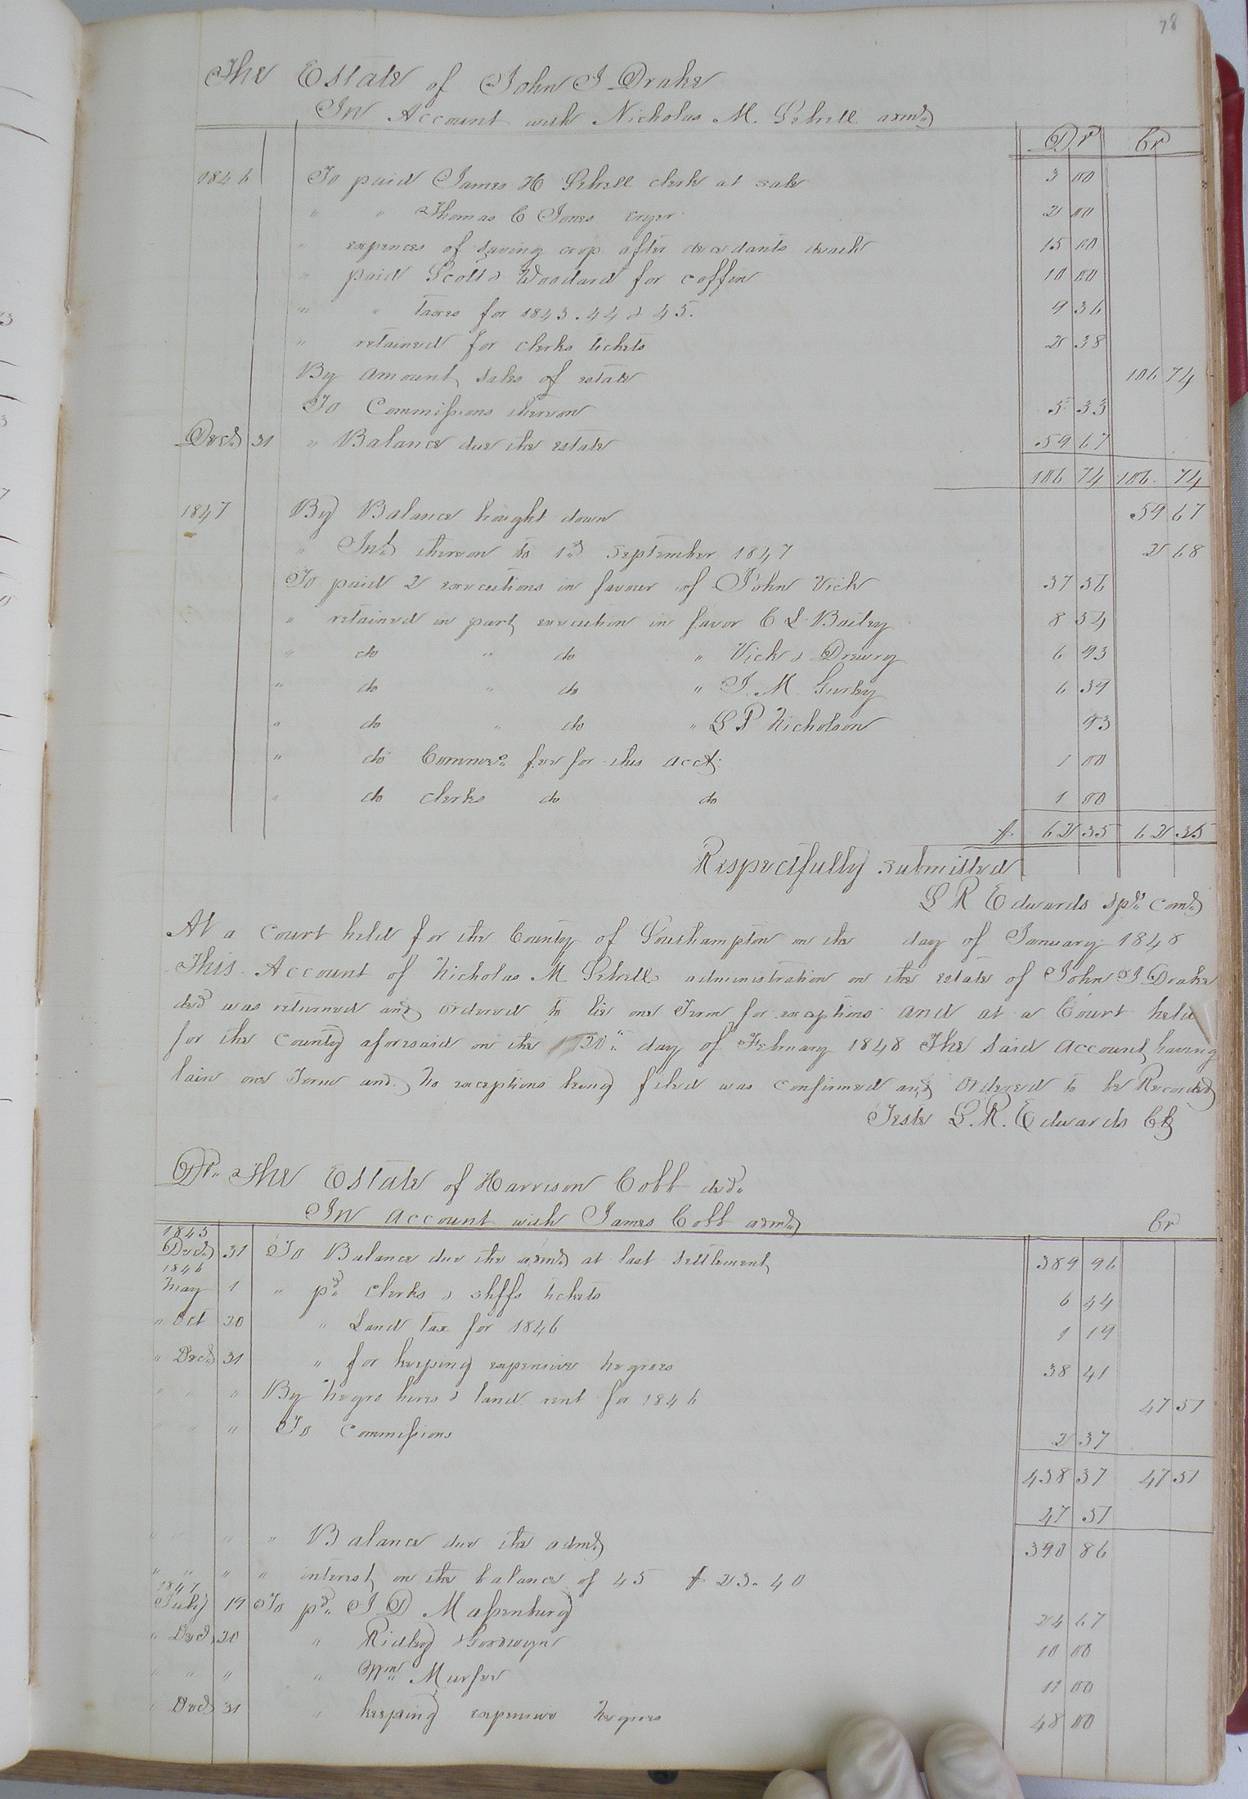 78
The Estate of John J Drake
In Account with Nicholas M. Sebrell admr
Dr Cr
1846 To paid James H Sebrell clerk at sale 3 00
" " Thomas C Jones cryer 2 00
" expences of saving crop after decedants death 15 00
" paid Scott & Woodard for coffin 10 00
" " taxes for 1843. 44 & 45. 9 36
" retained for clerks tickets 2 38
By amount sales of estate 106 74
To Commissions thereon 5 33
Decr 31 " Balance due the estate 59 67
106 74 106. 74
1847 By Balance brought down 59 67
" Int thereon to 1st September 1847 2 68
To paid 2 executions in favour of John Vick 37 56
" retained in part execution in favor C L Bailey 8 54
" do " do " Vick & Drewry 6 93
" do " do " J. M. Gurley 6 39
" do " do " L P Nicholson 93
" do Commrs fee for this acct. 1 00
" do clerks do do 1 00
$ 62 35 62 35
Respectfully submitted
L R Edwards spl. comr
At a Court held for the County of Southampton on the day of January 1848
This Account of Nicholas M Sebrell administration on the estate of John J Drake
decd was returned and ordered to lie one Term for exceptions and at a Court held
for the County aforesaid on the 20th day of February 1848 The said Account having
lain one Term and no exceptions being filed was confirmed and Ordered to be Recorded
Teste L. R. Edwards Clk
Dr. The Estate of Harrison Cobb decd.
In account with James Cobb admr
Cr
1845
Decr 31 To Balance due the admr at last settlement 389 96
1846
May 1 " pd. clerks & shffs tickets 6 44
" Oct 20 " Land tax for 1846 1 19
" Decr 31 " for keeping expensive negroes 38 41
" " " By negro hires & land rent for 1846 47 51
" " " To commissions 2 37
438 37 47 51
47 51
" " " " Balance due the admr 390 86
" " " " interest on the balance of 45 $ 23. 40
1847
July 19 To pd. J D Massenburg 24 67
" Decr 20 " Ridley & Goodwyn 10 00
" " " " Wm Murfee 11 00
" Decr 31 " keeping expensive negroes 48 00